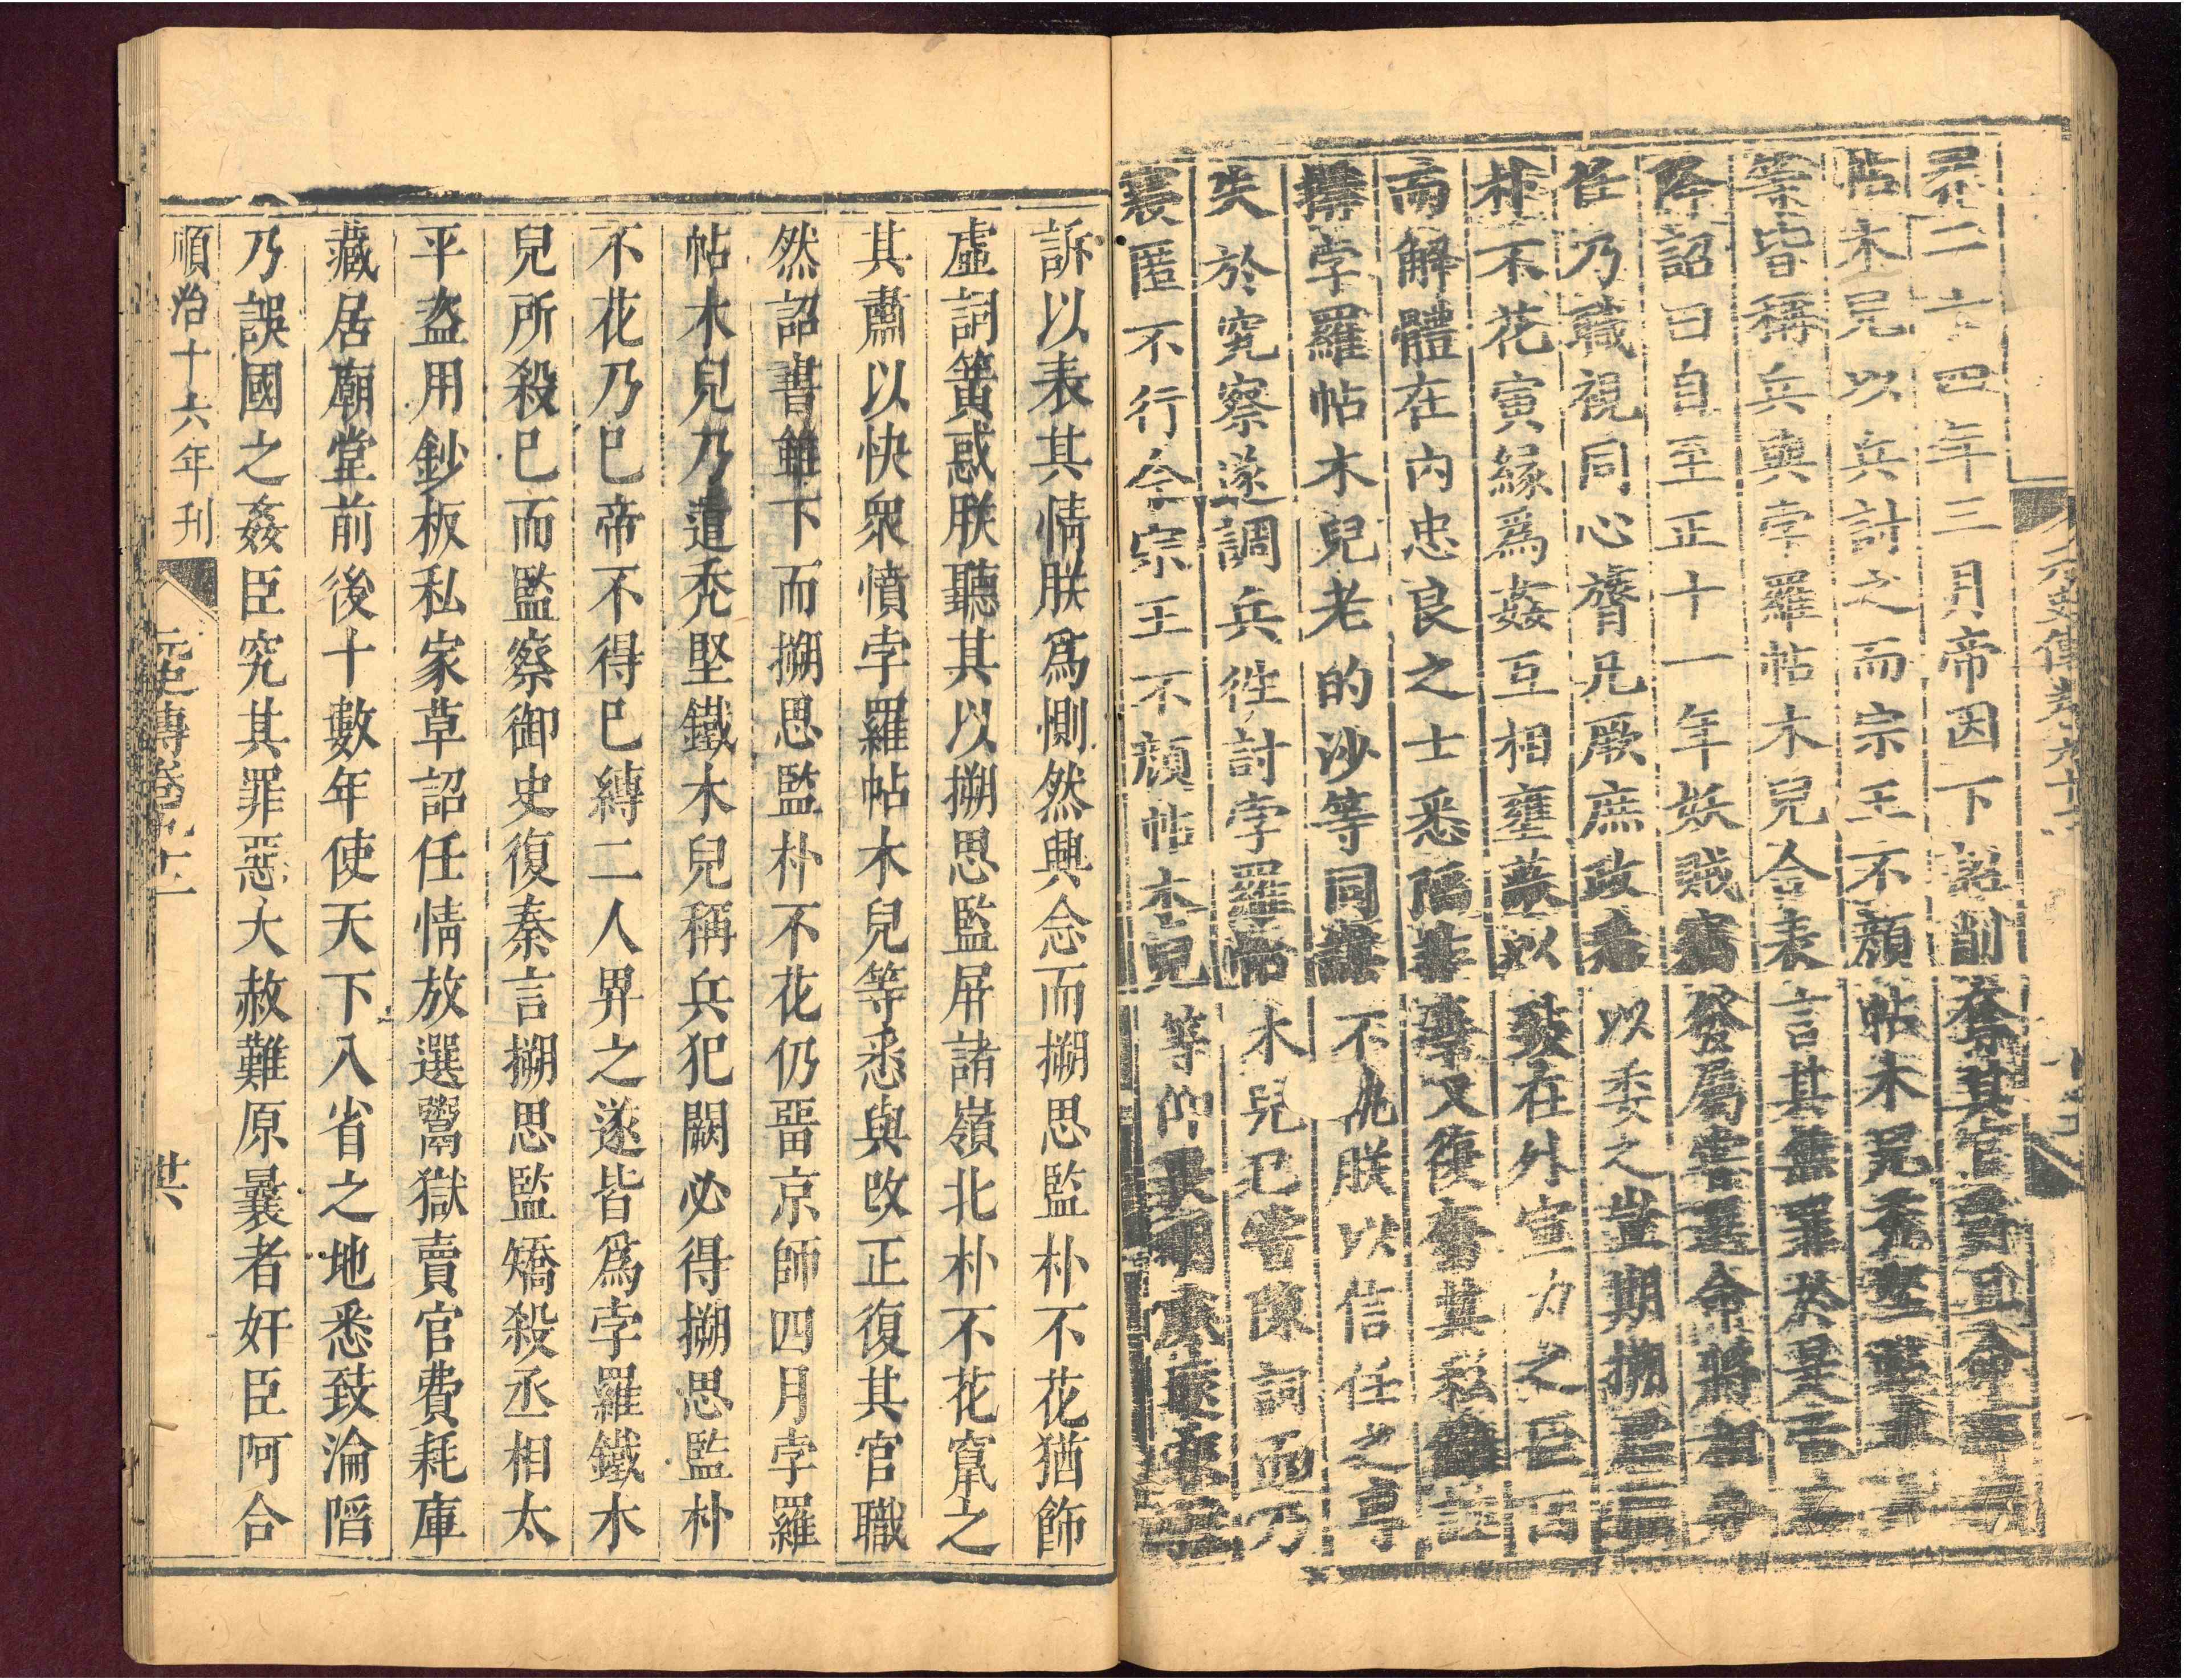 元史傳卷九十
兵二十四年三月帝因下詔削奪其官爵且命
帖木兒以兵討之而宗王不顏帖木兒禿堅
等皆稱兵與孛羅帖木兒合表言其無罪於是
降詔曰自至正十一年妖賊竊發屬嘗選命將相
任乃職視同心膂凡厥庶政悉以委之豈期搠思監
朴不花寅緣爲姦互相壅蔽以致在外宣力之臣因
而解體在內忠良之士悉陷非辜又復奮其私讎誣
搆孛羅帖木兒老的沙等同謀不軌朕以信任之專
失於究察遂調兵徃討孛羅帖木兒已嘗陳詞而乃
寢匿不行今宗王不顏帖木兒等仰
訴以表其情朕爲惻然興念而搠思監朴不花猶飾
虛詞簧惑朕聽其以搠思監屛諸嶺北朴不花竄之
其肅以快衆憤孛羅帖木兒等悉與改正復其官職
然詔書雖下而搠思監朴不花仍畱京師四月孛羅
帖木兒乃遣禿堅鐵木兒稱兵犯闕必得搠思監朴
不花乃巳帝不得巳縛二人畀之遂皆爲孛羅鐵木
兒所殺巳而監察御史復奏言搠思監矯殺丞相太
平盜用鈔板私家草詔任情放選鬻獄賣官費耗庫
藏居廟堂前後十數年使天下八省之地悉致淪陷
乃誤國之姦臣究其罪惡大赦難原曩者奸臣阿合
順治十六年刊
元史傳卷九十二